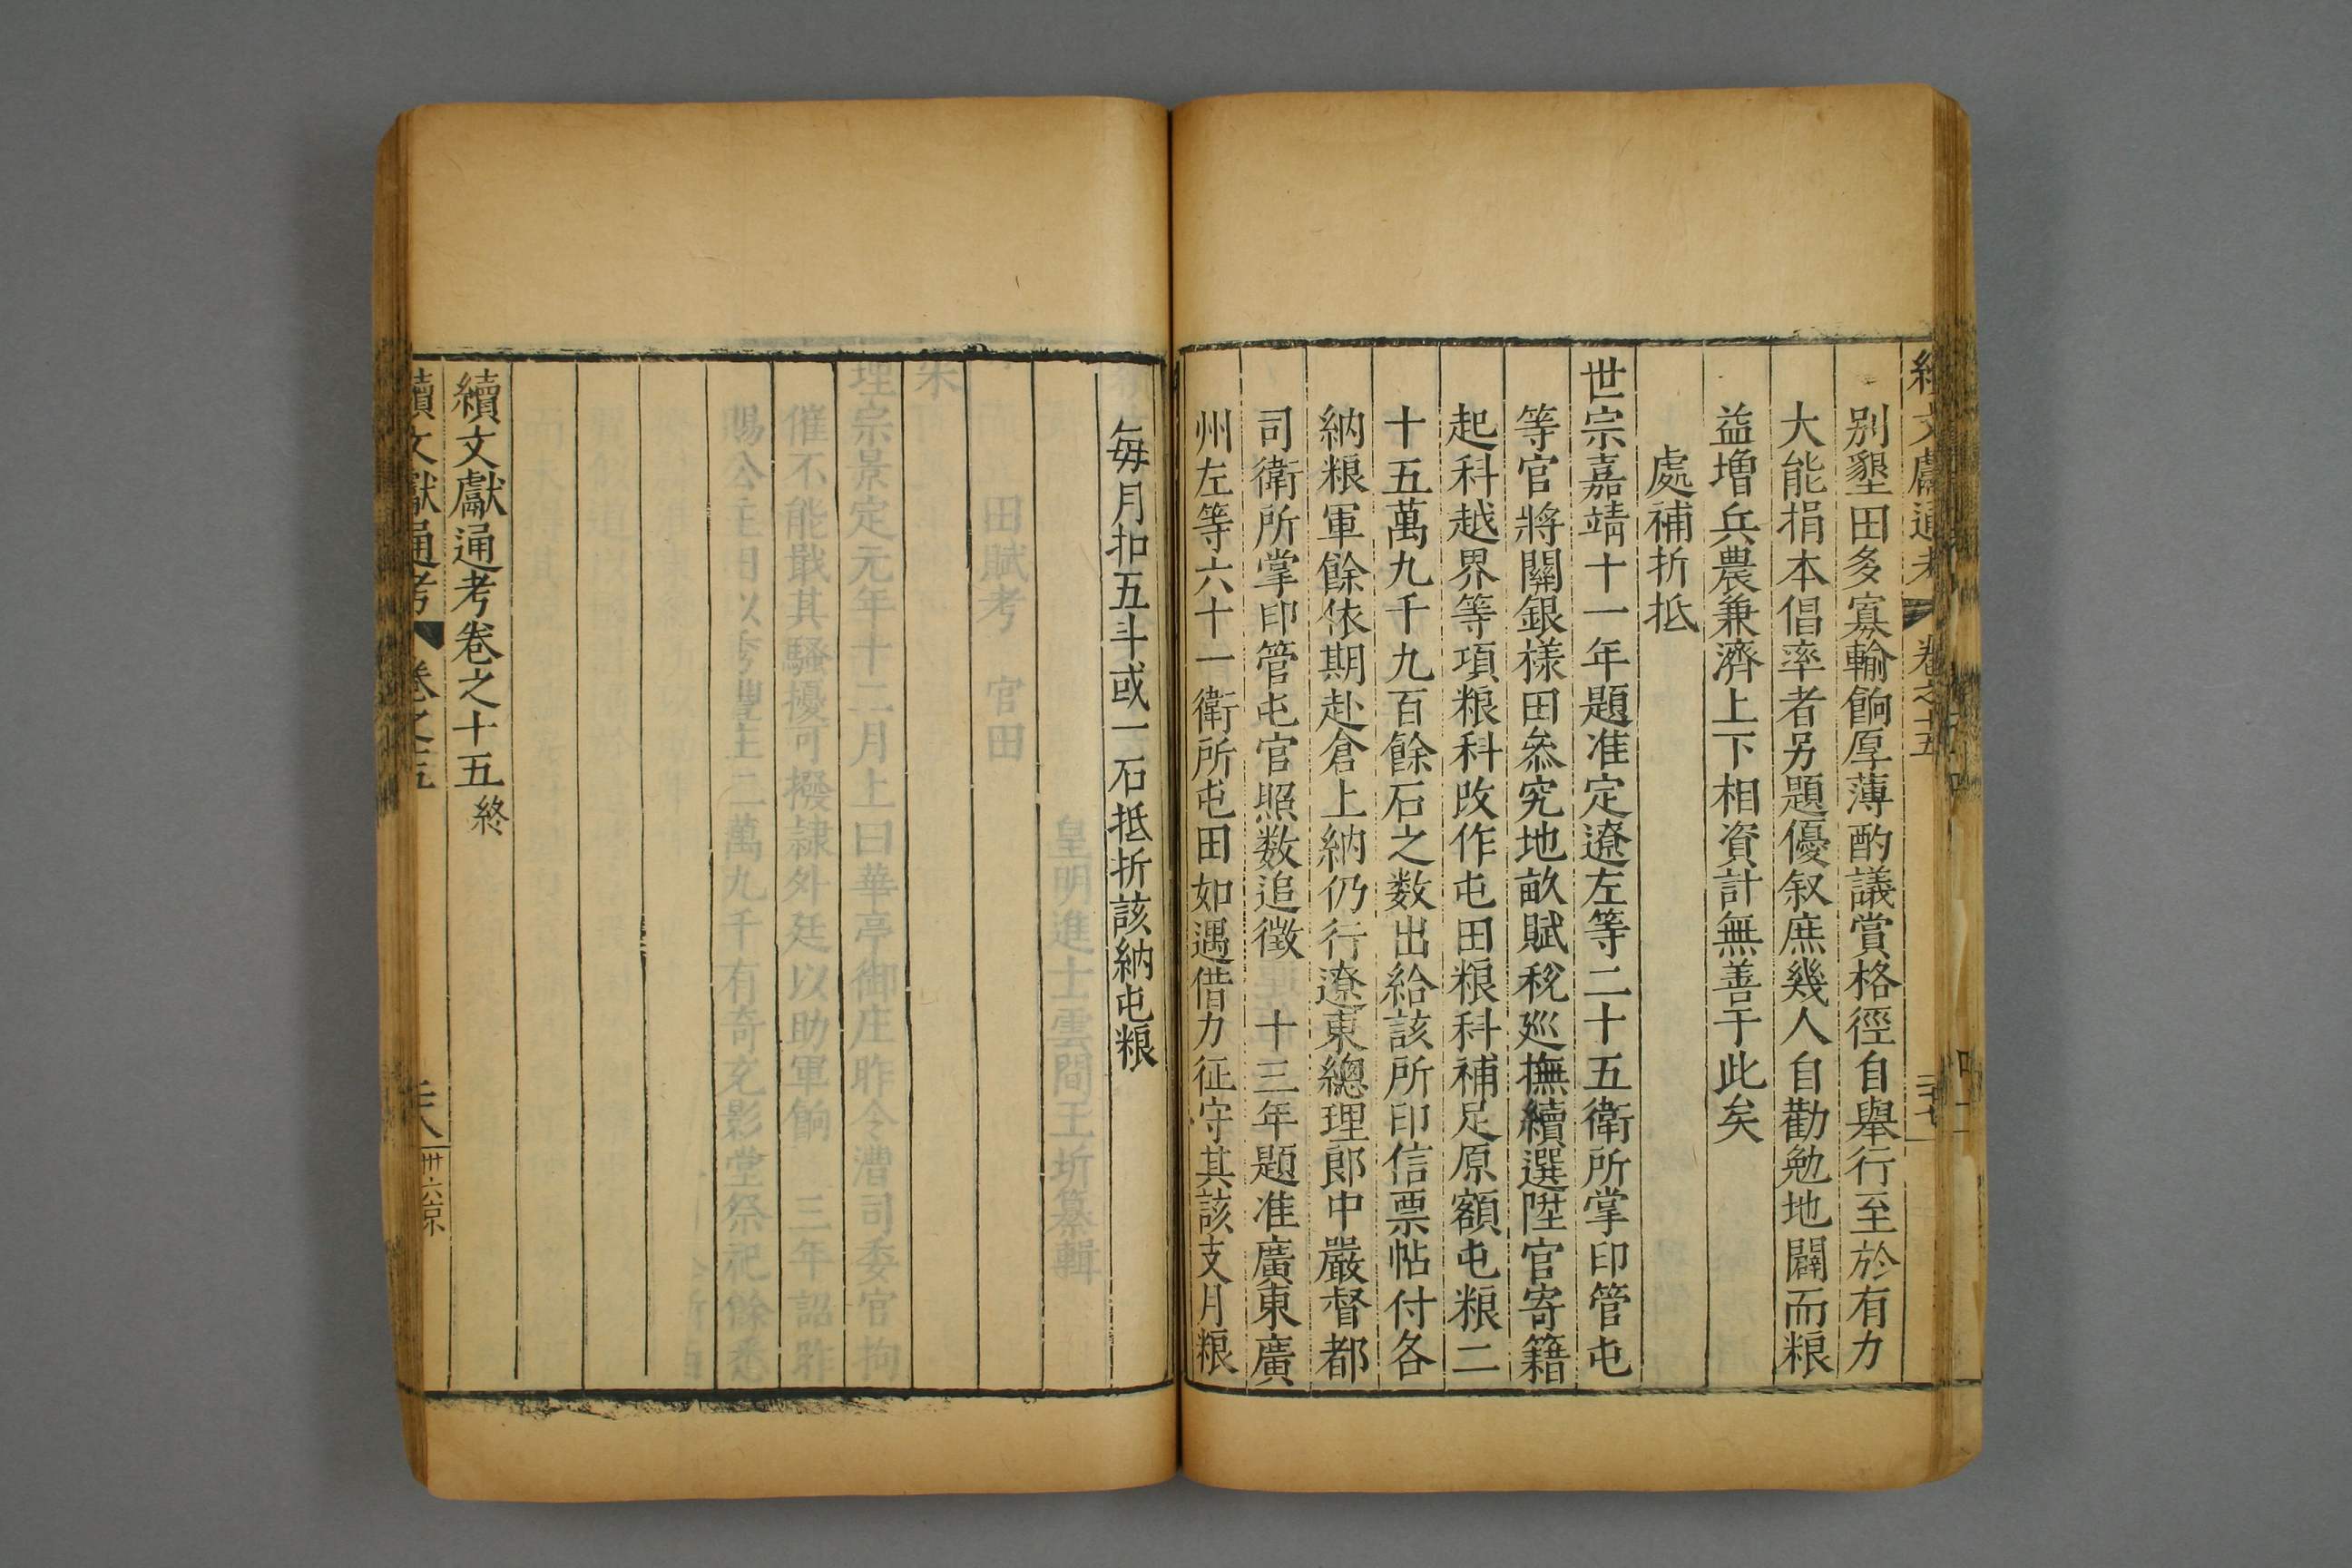 續文獻通考 卷之十五 三十七
別墾田多寡輸餉厚薄酌議賞格徑自舉行至於有力
大能捐本倡率者另題優叙庶幾人自勸勉地闢而粮
益增兵農兼濟上下相資計無善于此矣
處補折抵
世宗嘉靖十一年題准定遼左等二十五衛所掌印管屯
等官將關銀樣田叅究地畝賦稅巡撫續選陞官寄籍
起科越界等項粮科改作屯田粮科補足原額屯粮二
十五萬九千九百餘石之数出給該所印信票帖付各
納粮軍餘依期赴倉上納仍行遼東總理郎中嚴督都
司衛所掌印管屯官照数追徵 十三年題准廣東廣
州左等六十一衛所屯田如遇借力征守其該支月粮
每月扣五斗或一石抵折該納屯粮
續文獻通考卷之十五終
續文獻通考 卷之十五 三十八